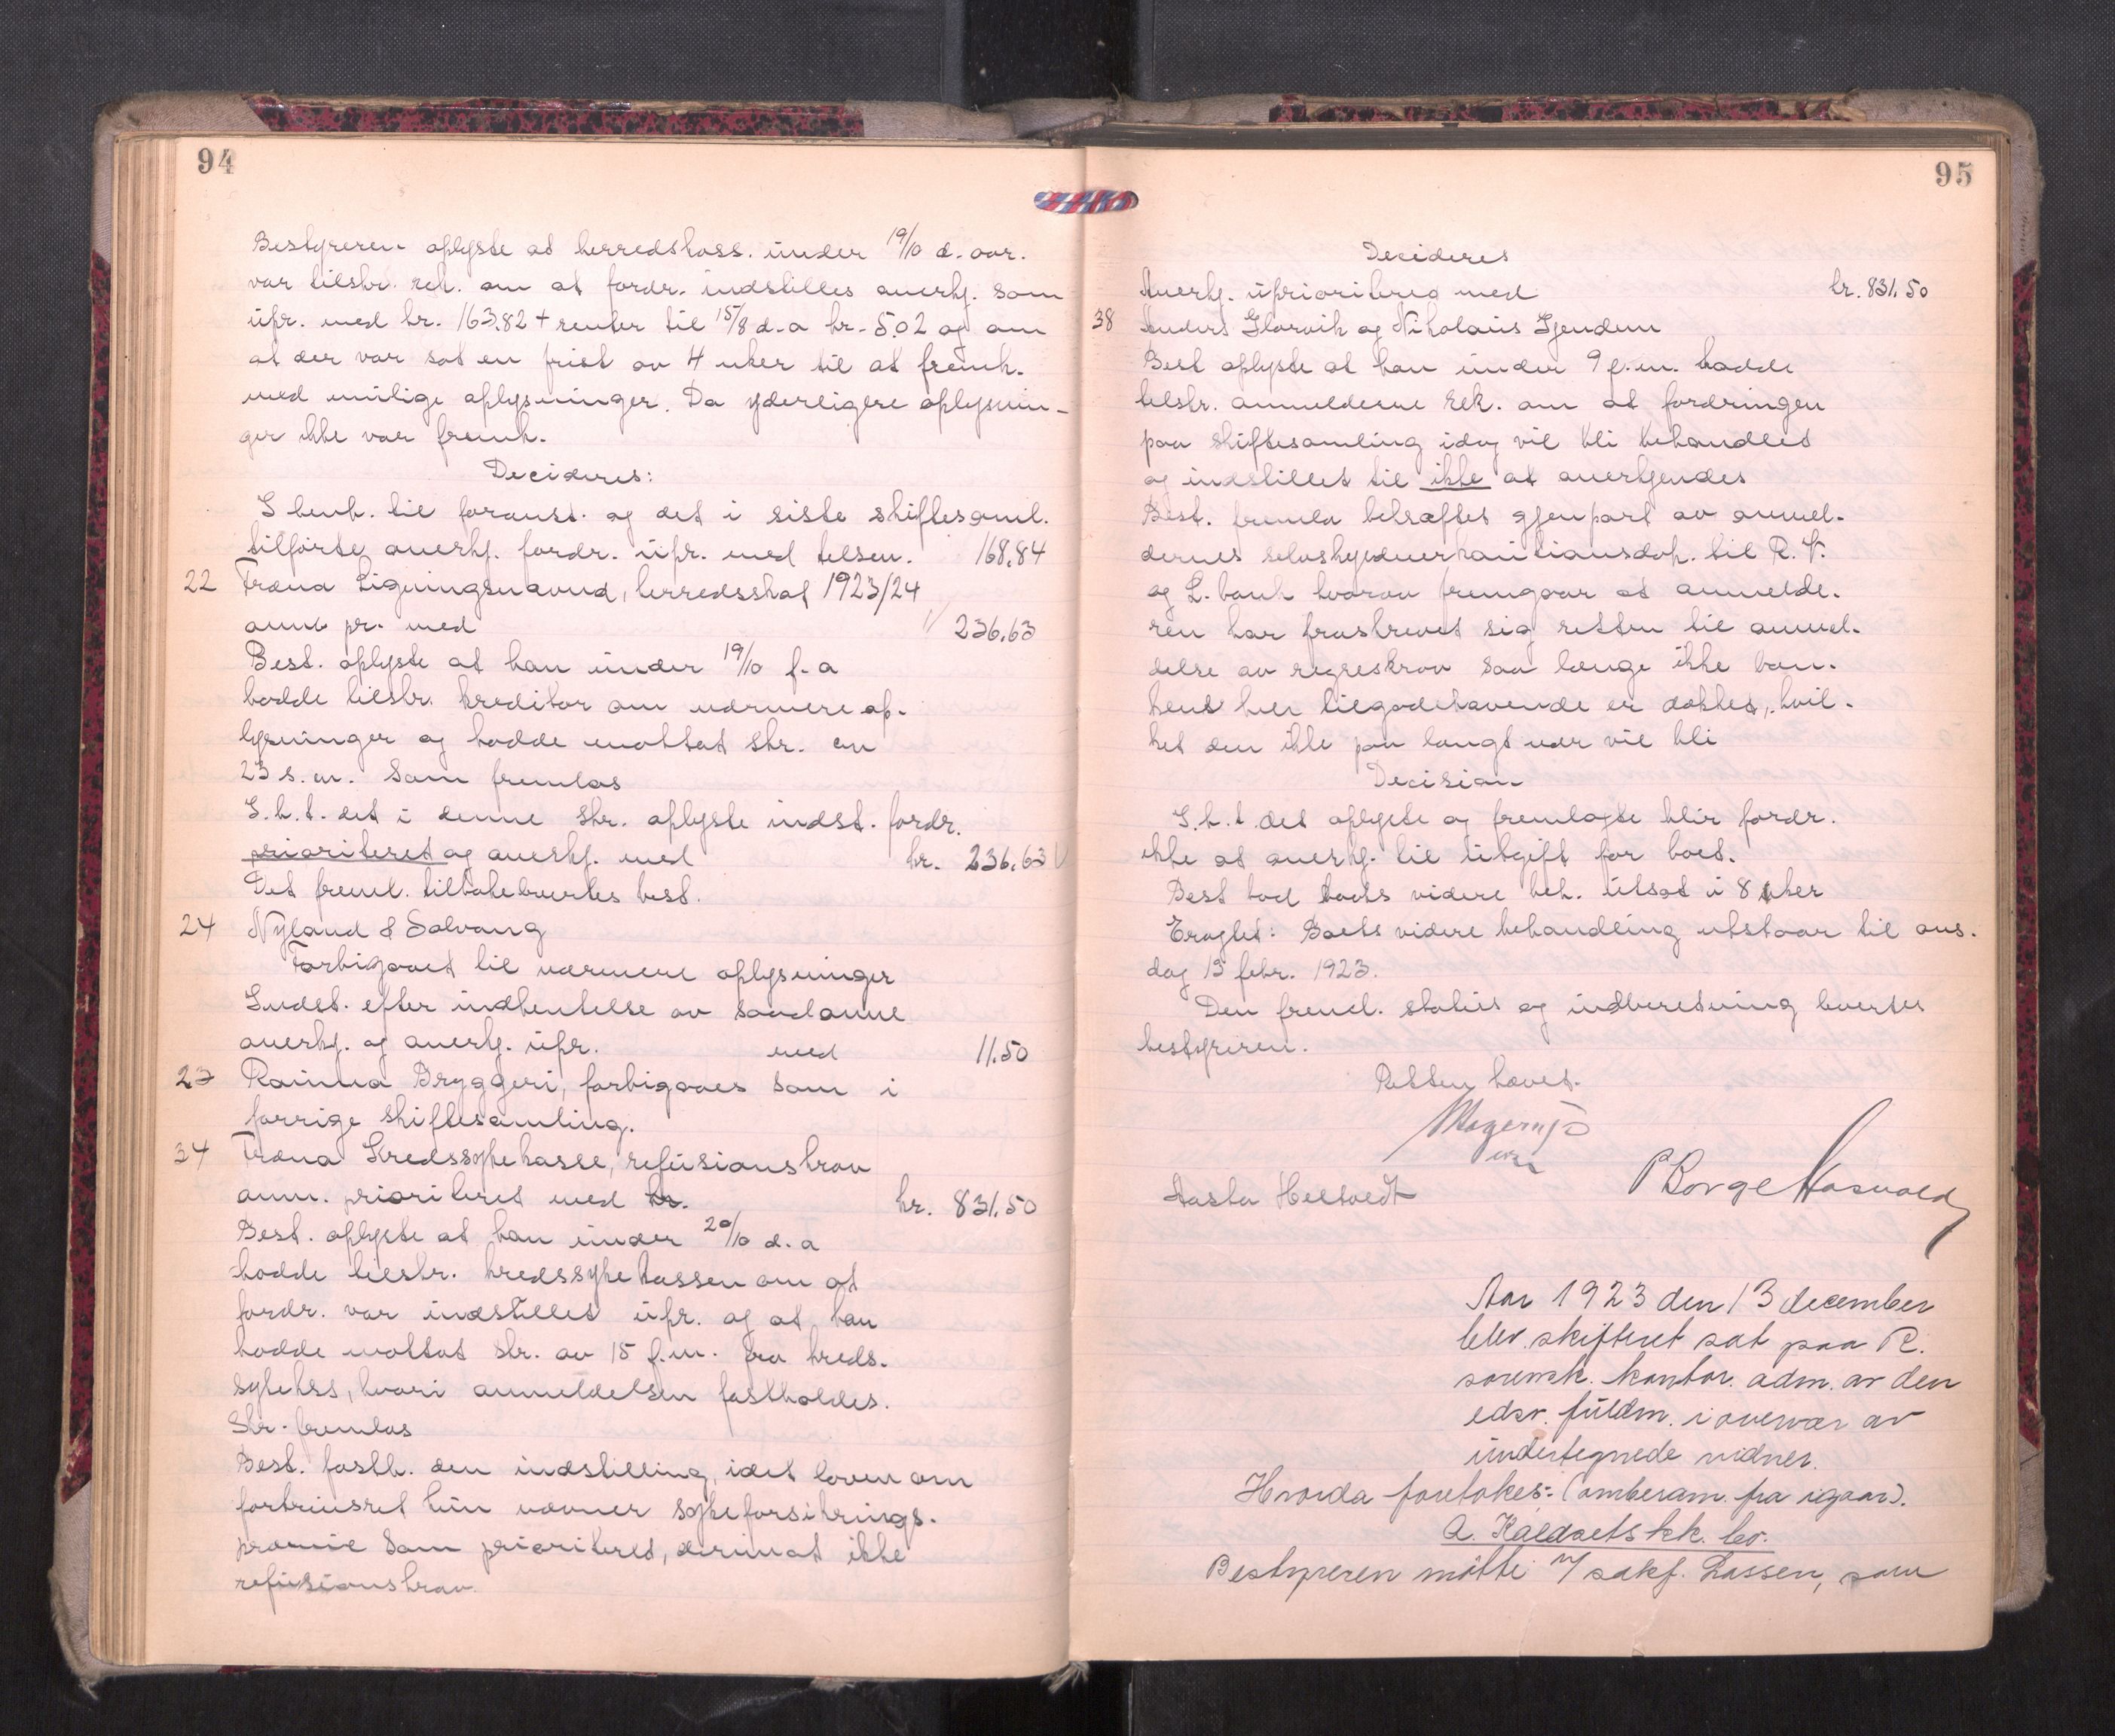 94
Bestyreren oplyste at herredskass. under 19/10 d. aar.
var tilskr. rek. om at fordr. indstilles anerkj. som
upr. med kr. 163.82 + renter til 15/8 d.a kr. 5.02 og om
at der var sat en frist av 4 uker til at fremk.
med mulige oplysninger. Da yderligere oplysnin-
ger ikke var fremk.
Decideres:
I henh. til foranst. og det i siste skiftesaml.
tilførte anerkj. fordr. upr. med tilsm. 168.84
22 Træna Ligningsnævnd, herredsskat 1923/24
anm pr. med 236.63
Best. oplyste at han under 19/10 f. a
hadde tilskr. kreditor om nærmere op-
lysninger og hadde mottat skr. av
23 s.m. som fremlas
I.h.t. det i denne skr. oplyste indst. fordr.
prioriteret og anerkj. med kr. 236.63
Det freml. tilbakeleveres best.
24 Nyland & Solvang
Forbigaaet til nærmere oplysninger
Indst. efter indhentelse av saadanne
anerkj. og anerkj. upr. med 11.50
27 Rainna Bryggeri, forbigaaes som i
forrige skiftesamling.
34 Træna Kredssykekasse, refusionskrav
anm. prioriteret med kr. kr. 831.50
Best. oplyste at han under 20/10 d. a
hadde tilskr. kredssykekassen om at
fordr. var indstillet upr. og at han
hadde mottat skr. av 15 f.m. fra kreds-
sykekss, hvori anmeldelsen fastholdes.
Skr. fremlas
Best. fasth. den indstilling, idet loven om
fortrinsret kun nævner sykeforsikrings-
præmie som prioriteret, derimot ikke
refusionskrav
95
Decideres
Anerkj. uprioritereg med kr. 831.50
38 Anders Glorvik og Nikolaus Gjendem
Best oplyste at han under 9 f.m. hadde
tilskr. anmelderne rek. om at fordringen
paa skiftesamling idag vil bli behandlet
og indstillet til ikke at anerkjendes
Best. fremla bekræftet gjenpart av anmel-
dernes selvskyldnerkautionsdok. til R. V.
og L. bank hvorav fremgaar at anmelde-
ren har fraskrevet sig retten til anmel-
delse av regreskrav saa længe ikke ban-
kens hele tilgodehavende er dækket, hvil-
ket den ikke paa langt nær vil bli
Decision
I.h.t. det oplyste og fremlagte blir fordr.
ikke at anerkj. til utgift for boet.
Best bad boets videre beh. utsat i 8 uker
Eragtet: Boets videre behandling utstaar til ons-
dag 13 febr. 1923.
Den freml. status og indberetning leveres
bestyreren.
Retten hævet.
Aasta Heltvedt P Borge Hasvold
Aar 1923 den 13 december
blev skifteret sat paa R.
sorensk. kontor. adm. av den
edsv. fuldm. i overvær av
undertegnede vidner.
Hvorda foretokes: (omberam. fra igaar).
A. Kaldsets kk. bo.
Bestyreren møtte v/ sakf. Lassen, som